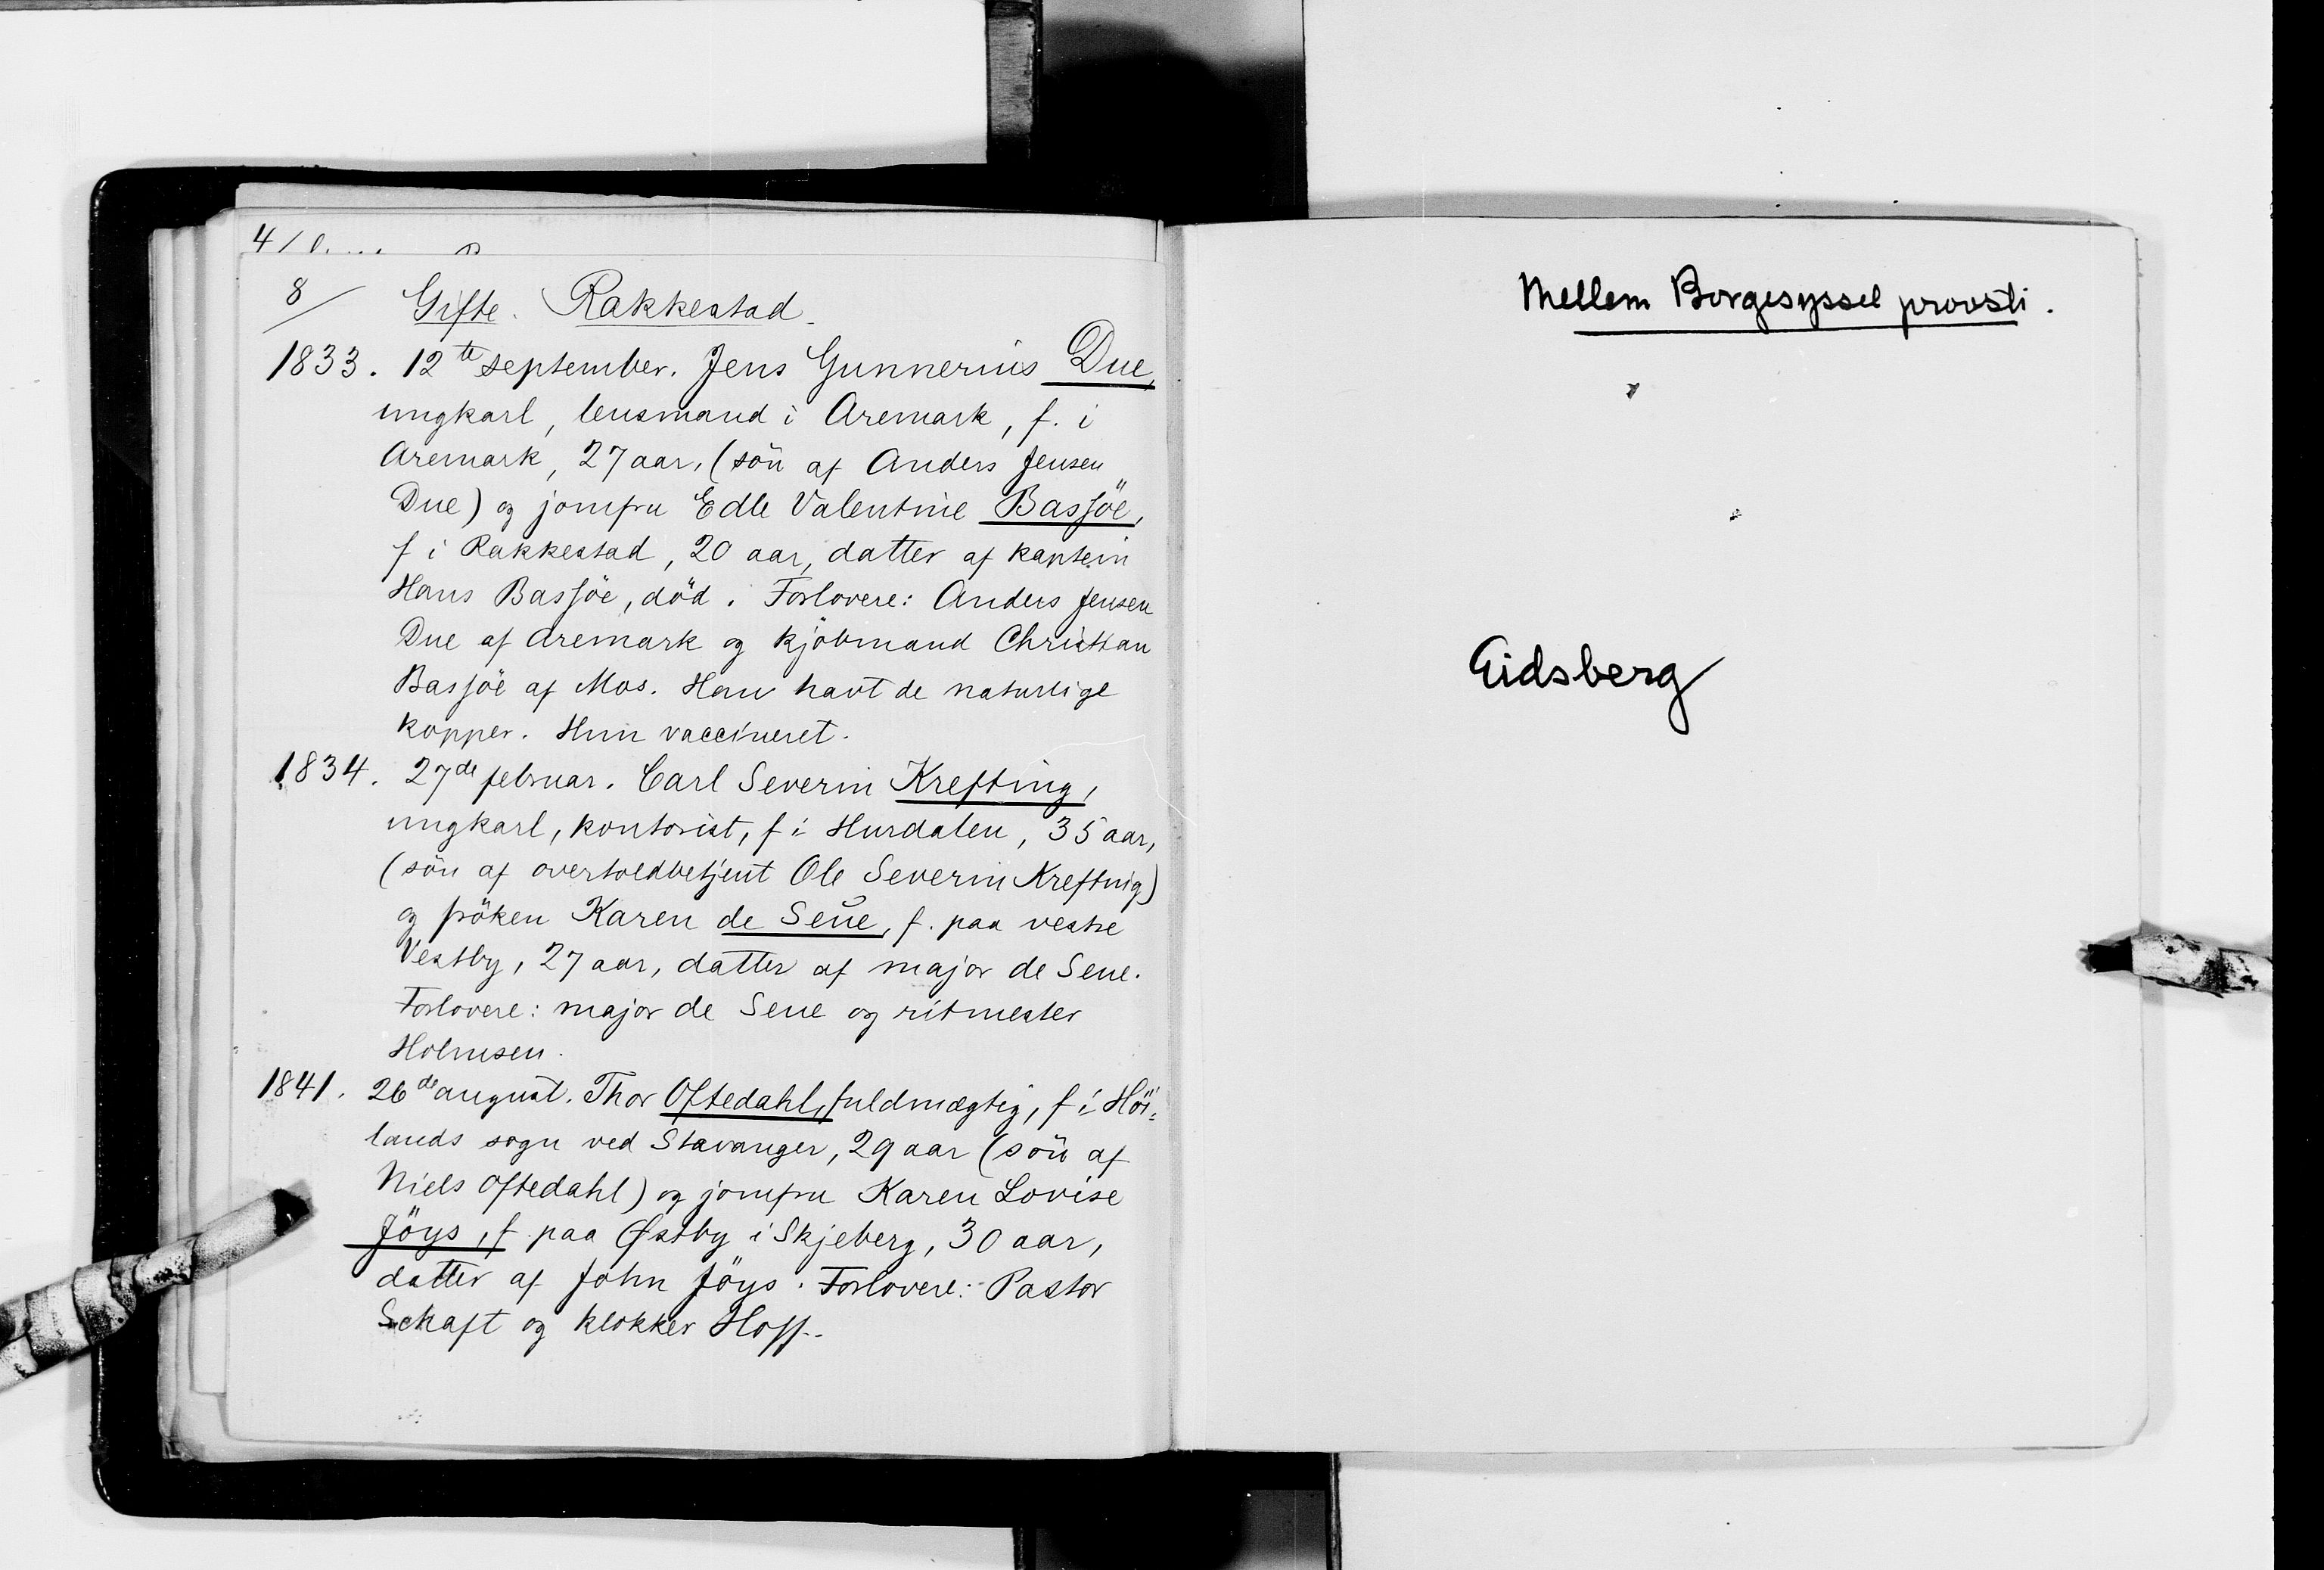 8/ Gifte. Rakkestad.
1833. 12te september. Jens Gunnerius Due,
ungkarl, lensmand i Aremark, f. i
Aremark, 27 aar, (sön af Anders Jensen
Due) og jomfru Edle Valentine Bassöe,
f i Rakkestad, 20 aar, datter af kaptein
Hans Bassöe, död. Forlovere: Anders Jensen
Due af Aremark og kjöbmand Christian
Bassöe af Mos. Han havt de naturlige
kopper. Hun vaccineret.
1834. 27de februar. Carl Severin Krefting,
ungkarl, kontorist, f i Hurdalen, 35 aar,
(sön af overtoldbetjent Ole Severin Krefting)
og fröken Karen de Seue, f. paa vestre
Vestby, 27 aar, datter af major de Seue.
Forlovere: major de Seue og ritmester
Holmsen.
1841. 26de august. Thor Oftedahl, fuldmægtig, f i Höi-
lands sogn ved Stavanger, 29 aar (sön af
Niels Oftedahl) og jomfru Karen Lovise
Jöys, f paa Østby i Skjeberg, 30 aar,
datter af John Jöys. Forlovere: Pastor
Schaft og klokker Hoff.
Mellem Borgesyssel provsti.
Eidsberg